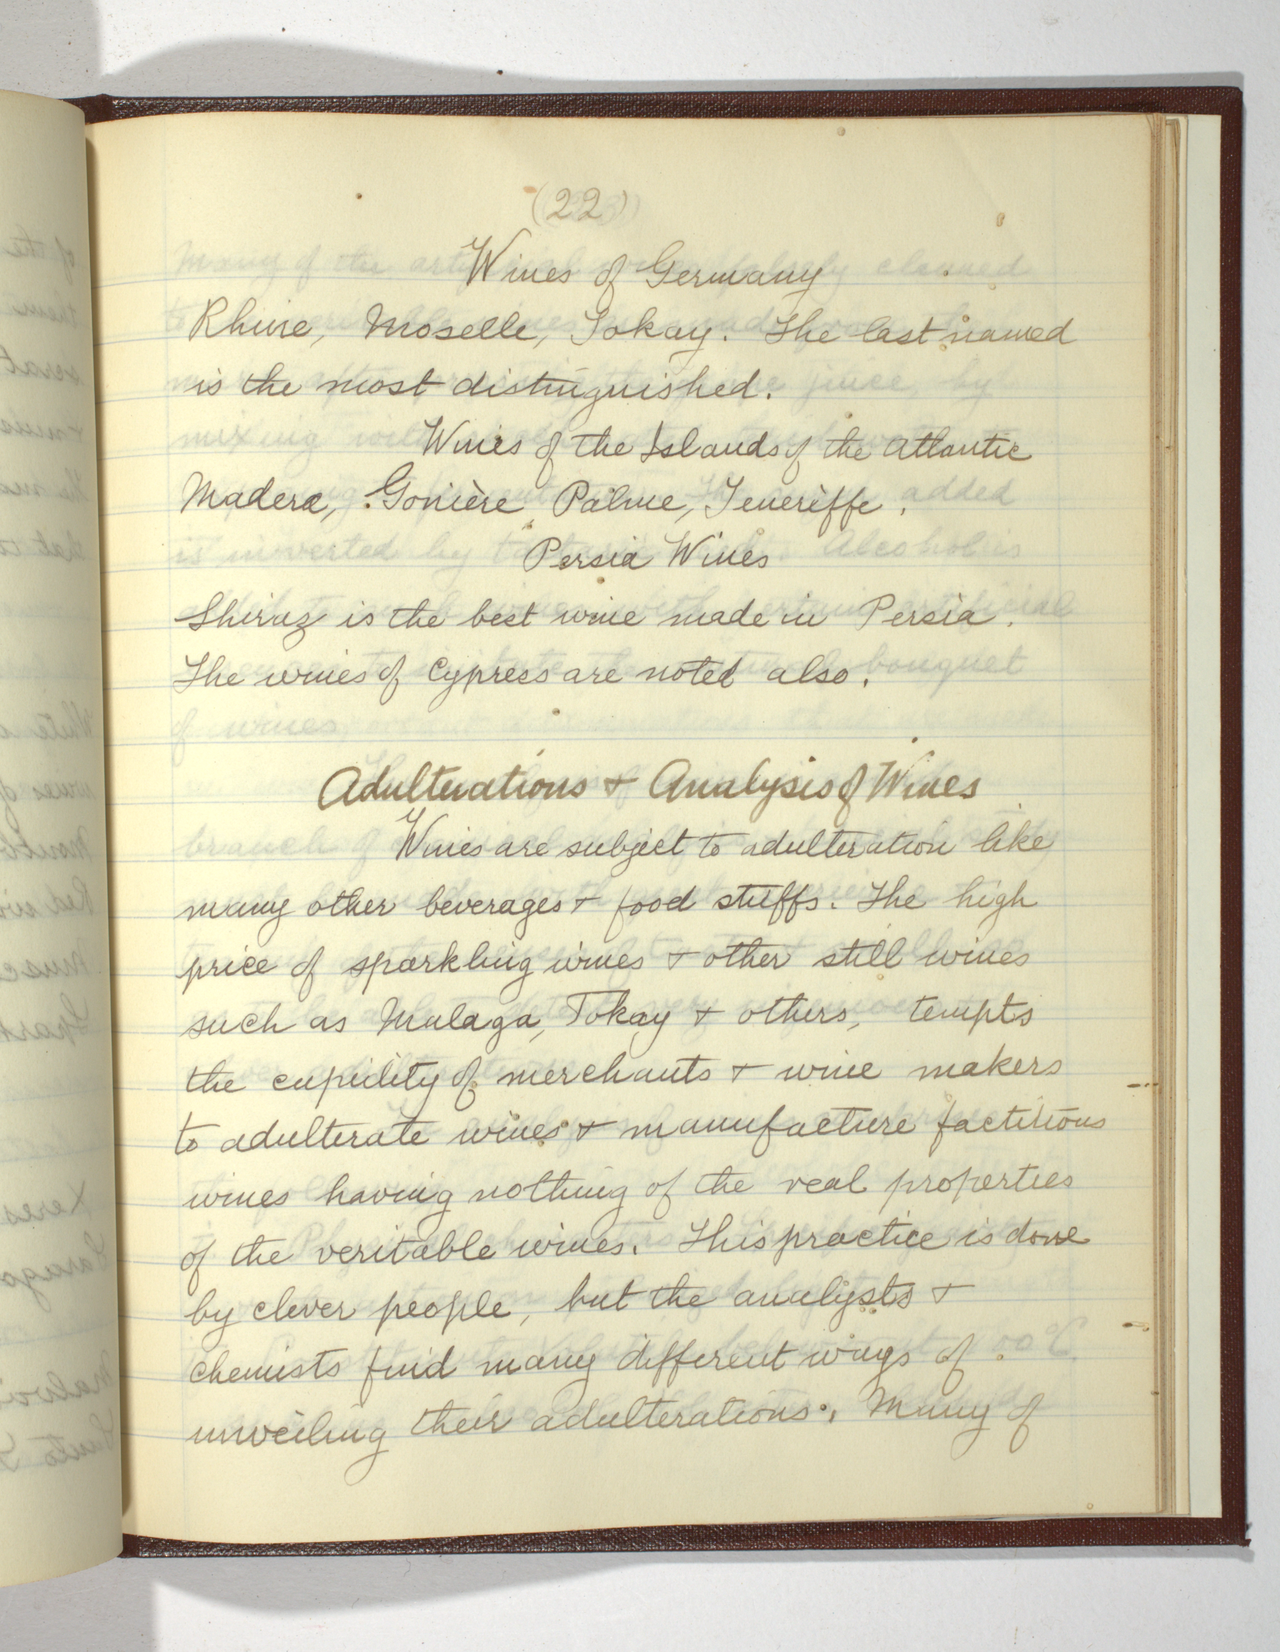 (22)
Wines of Germany
Rhine, Moselle, Tokay. The last named
is the most distinguished.
Wines of the Islands of the Atlantic
Madera, Gonière Palme, Teneriffe.
Persia Wines
Shiraz is the best wine made in Persia.
The wines of Cypress are noted also.
Adulterations & Analysis of Wines
Wines are subject to adulteration like
many other beverages & food stuffs. The high
price of sparkling wines & other still wines
such as Malaga, Tokay & others, tempts
the cupidity of merchants & wine makers
to adulterate wines & manufacture factitious
wines having nothing of the real properties
of the veritable wines. This practice is done
by clever people, but the analysts &
chemists find many different ways of
unveiling their adulterations. Many of